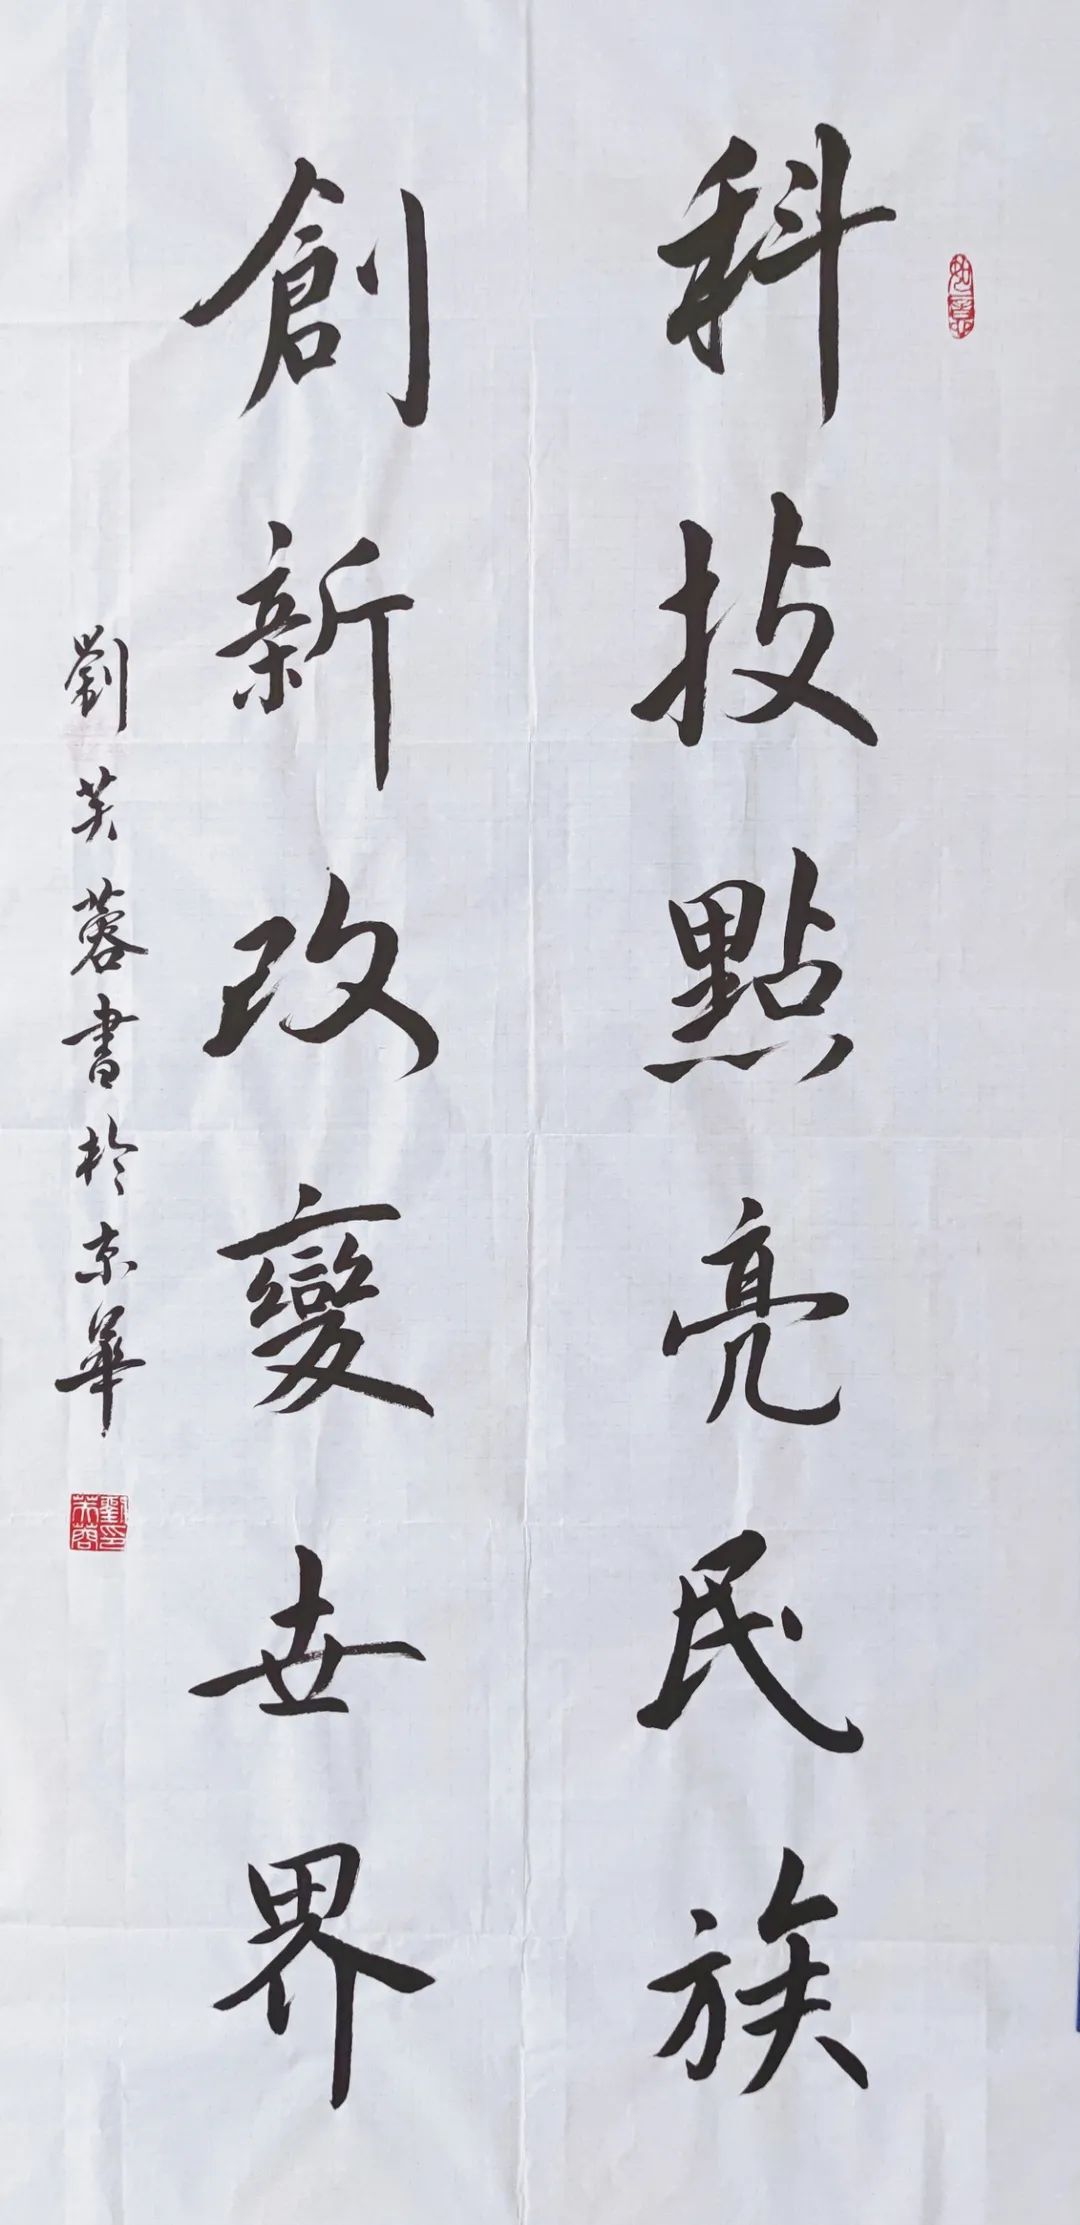 科技點亮民族
創新改變世界
劉芙蓉書於京華
如意
劉芙蓉印